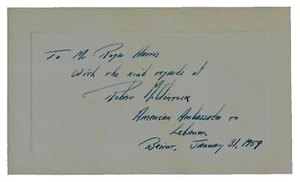 To Mr. Roger Harris
With the kind regards of
Robert McClintock
American Ambassador to
Lebanon
Beirut, January 31, 1959